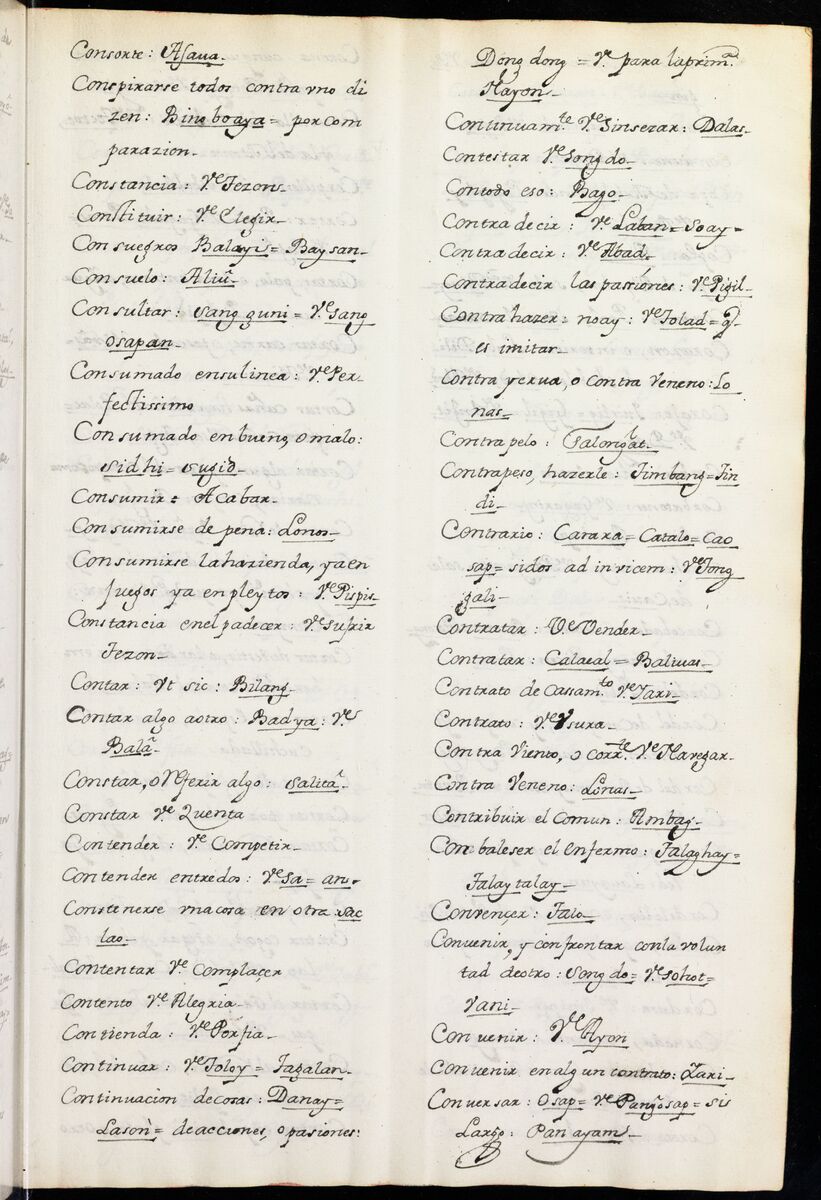 Consorte: Asaua.
Conspirarse todos contra vno di
zen: Bino boaya = por com
parazion_
Constancia: Ve Tezon_
Constituir: Ve Elegir_
Consuegros Balayi = Baysan_
Consuelo: Aliũ_
Consultar: Sang guni = Ve Sang
osapan_
Consumado ensulinea: Ve Per_
fectissimo
Consumado en bueno, o malo:
Sidhi = Sugid_
Consumir: Acabar_
Consumirse de pena: Lonos_
Consumirse la hazienda, ya en
juegos ya en pleytos: Ve Pispis_
Constancia en el padecer: Ve sufrir
Tezon_
Contar: Vt sic: Bilang_
Contar algo a otro: Badya: Ve
Balã_
Constar, o Referir algo: Salitã_
Constar Ve Quenta
Contender: Ve Competir_
Contender entre dos: Ve Sa = an_
Constenerse vna cosa en otra: Sac
lao_
Contentar Ve Complaçer
Contento Ve Alegria_
Contienda: Ve Porfia_
Continuar: Ve Toloy = Tagalan_
Continuacion de cosas: Danay =
Lasoǹ = de acciones, o pasiones:
Dong dong = Ve para la primã.
Hayon_
Continuam.te Ve Sinserar: Dalas_
Contestar Ve Song do_
Con todo eso: Bago_
Contra decir: Ve Laban = Soay =
Contra decir: Ve Abad_
Contra decir las passiones: Ve Pigil_
Contra hazer: no ay: Ve Tolad = q̃
es imitar_
Contra yerua, o contra Veneno: Lo
nas_
Contrapelo: Salong̃at_
Contrapeso, hazerle: Timbang = Tin
di_
Contrario: Carara = Catalo = Cao
sap = sidos ad invicem: Ve Tong
gali_
Contratar: Ve Vender_
Contratar: Calacal = Baliuas_
Contrato de Cassam.to Ve Tari_
Contrato: Ve Vsura_
Contra Viento, o corr.te Ve Navegar_
Contra Veneno: Lonas_
Contribuir el Comun: Ambag_
Conbaleser el Enfermo: Talaghay =
Talaytalay_
Convençer: Talo_
Convenir, y confrontar con la volun
tad de otro: Song do = Ve Sohot_
Vani_
Convenir: Ve Ayon_
Convenir en algun contrato: Tari_
Conversar: Osap = Ve Pang̃osap = sis
Largo: Panayam_